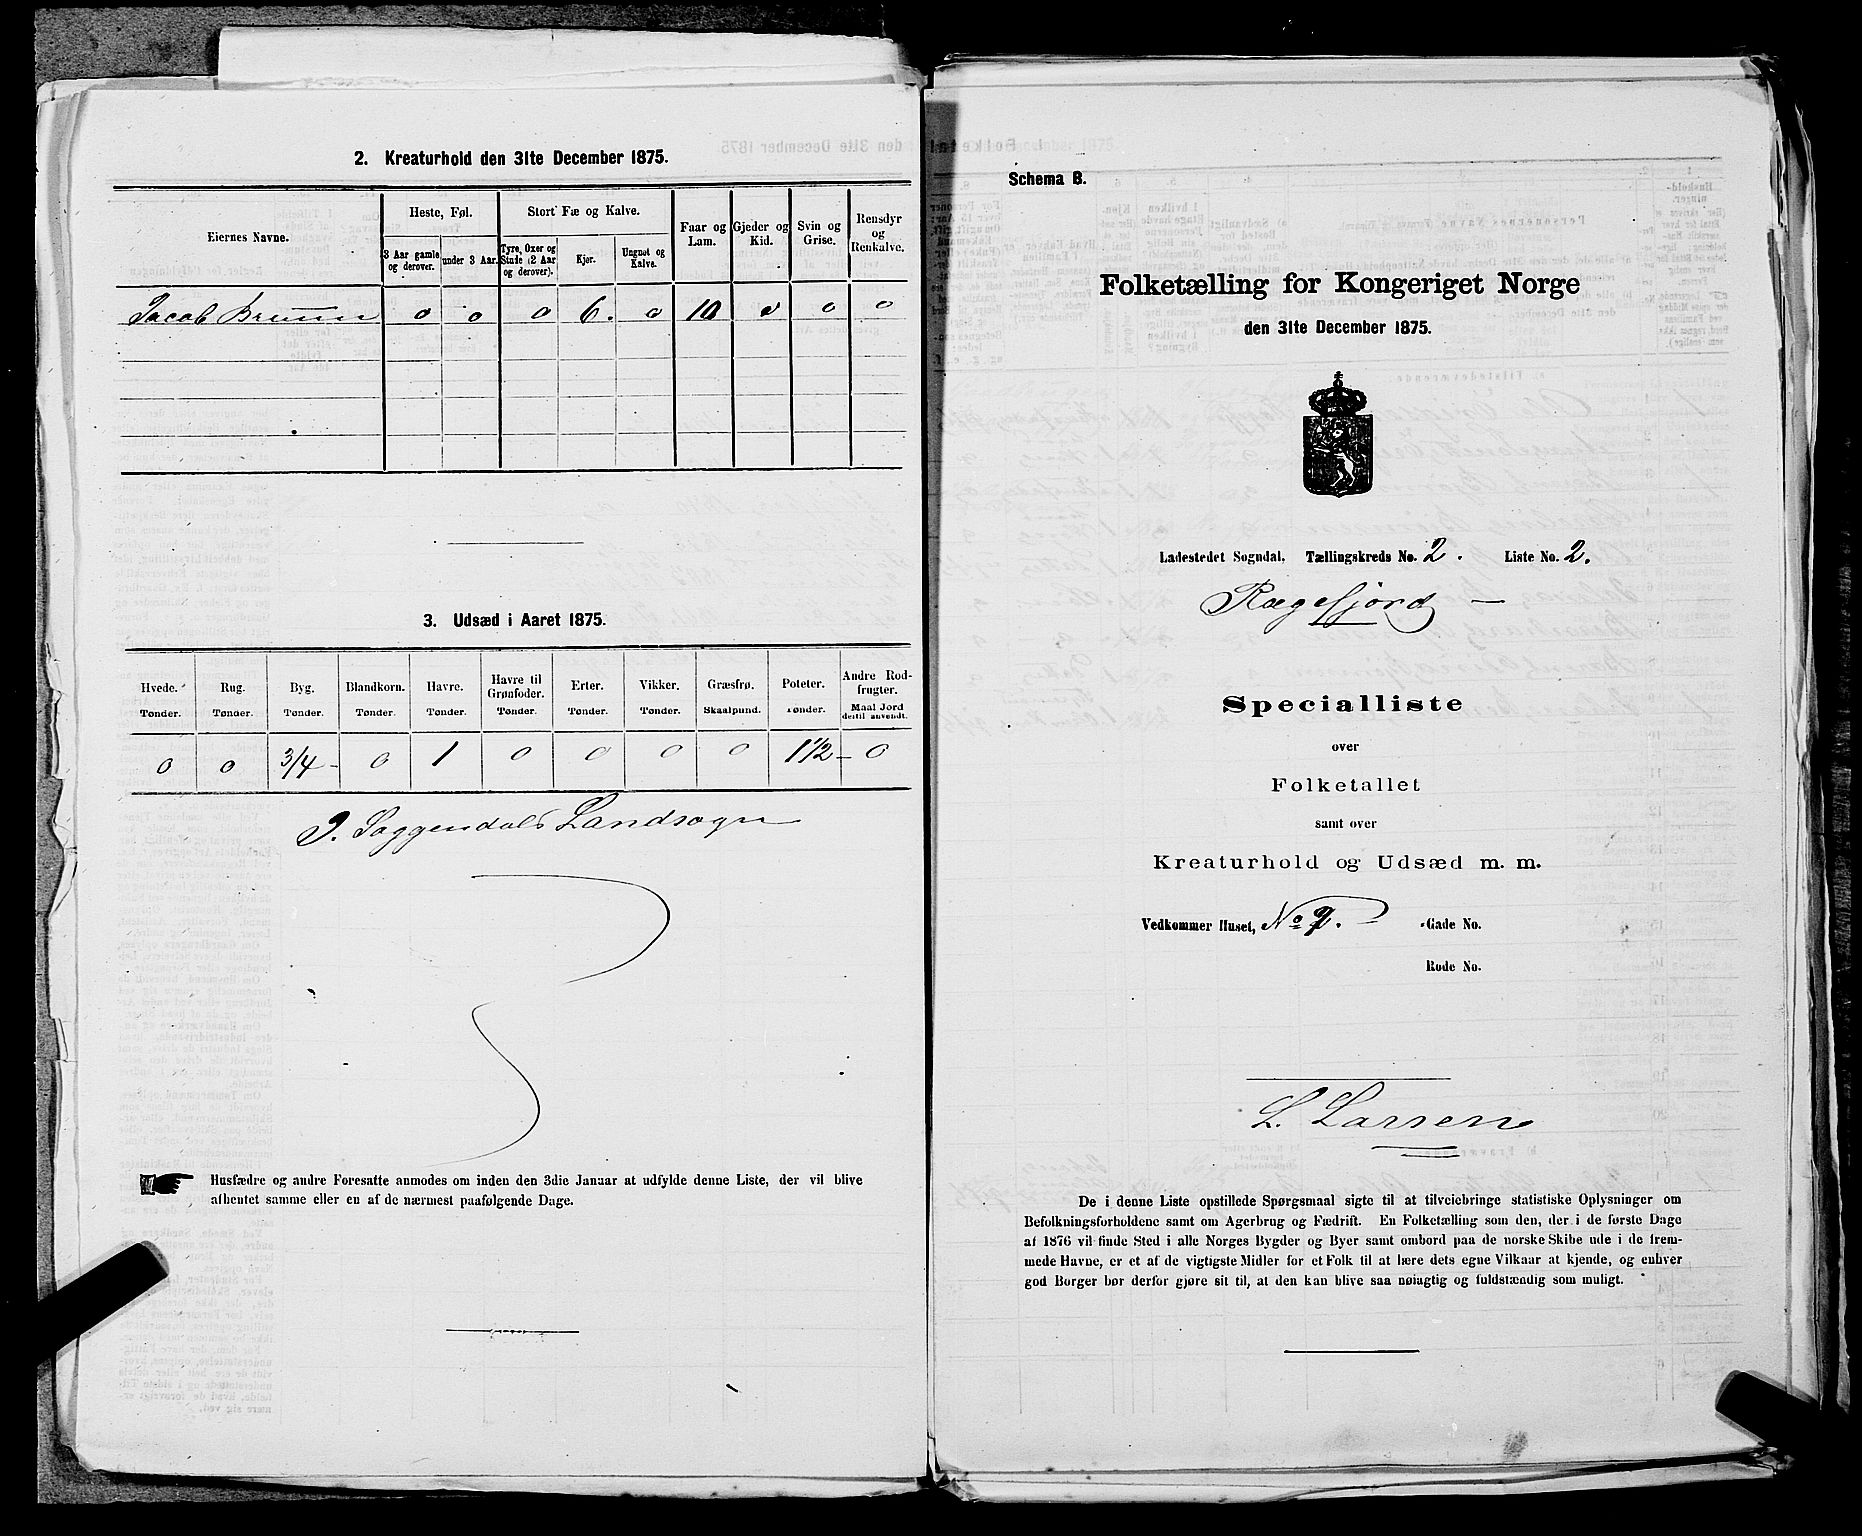 2. Kreaturhold den 31te December 1875.
Eiernes Navne.
Heste, Føl.
3 Aar gamle og derover.
under 3 Aar.
Stort Fæ og Kalve.
Tyre, Oxer og Stude (2 Aar og derover).
Kjør.
Ungnøt og Kalve.
Faar og Lam.
Gjeder og Kid.
Svin og Grise.
Rensdyr og Renkalve.
Jacob Bruun 0 0 0 6. 0 10 0 0 0
3. Udsæd i Aaret 1875.
Hvede. Rug. Byg. Blandkorn. Havre. Havre til Grønfoder. Erter. Vikker. Græsfrø. Poteter. Andre Rodfrugter.
Tønder. Tønder. Tønder. Tønder. Tønder. Tønder. Tønder. Tønder. Skaalpund. Tønder. Maal Jord dertil anvendt.
0 0 3/4 - 0 1 0 0 0 0 1 1/2 - 0
I. Soggendals Landsogn
Husfædre og andre Foresatte anmodes om inden den 3die Januar at udfylde denne Liste, der vil blive
afhentet samme eller en af de nærmest paafølgende Dage.
Schema B.
Folketælling for Kongeriget Norge
den 31te December 1875.
Ladestedet Sogndal. Tællingskreds No. 2. Liste No. 2.
Rægefjord —
Specialliste
over
Folketallet
samt over
Kreaturhold og Udsæd m. m.
Vedkommer Huset, No 2. Gade No.
Rode No.
L. Larsen
De i denne Liste opstillede Spørgsmaal sigte til at tilveiebringe statistiske Oplysninger om
Befolkningsforholdene samt om Agerbrug og Fædrift. En Folketælling som den, der i de første Dage
af 1876 vil finde Sted i alle Norges Bygder og Byer samt ombord paa de norske Skibe ude i de frem-
mede Havne, er et af de vigtigste Midler for et Folk til at lære dets egne Vilkaar at kjende, og enhver
god Borger bør derfor gjøre sit til, at den kan blive saa nøiagtig og fuldstændig som muligt.